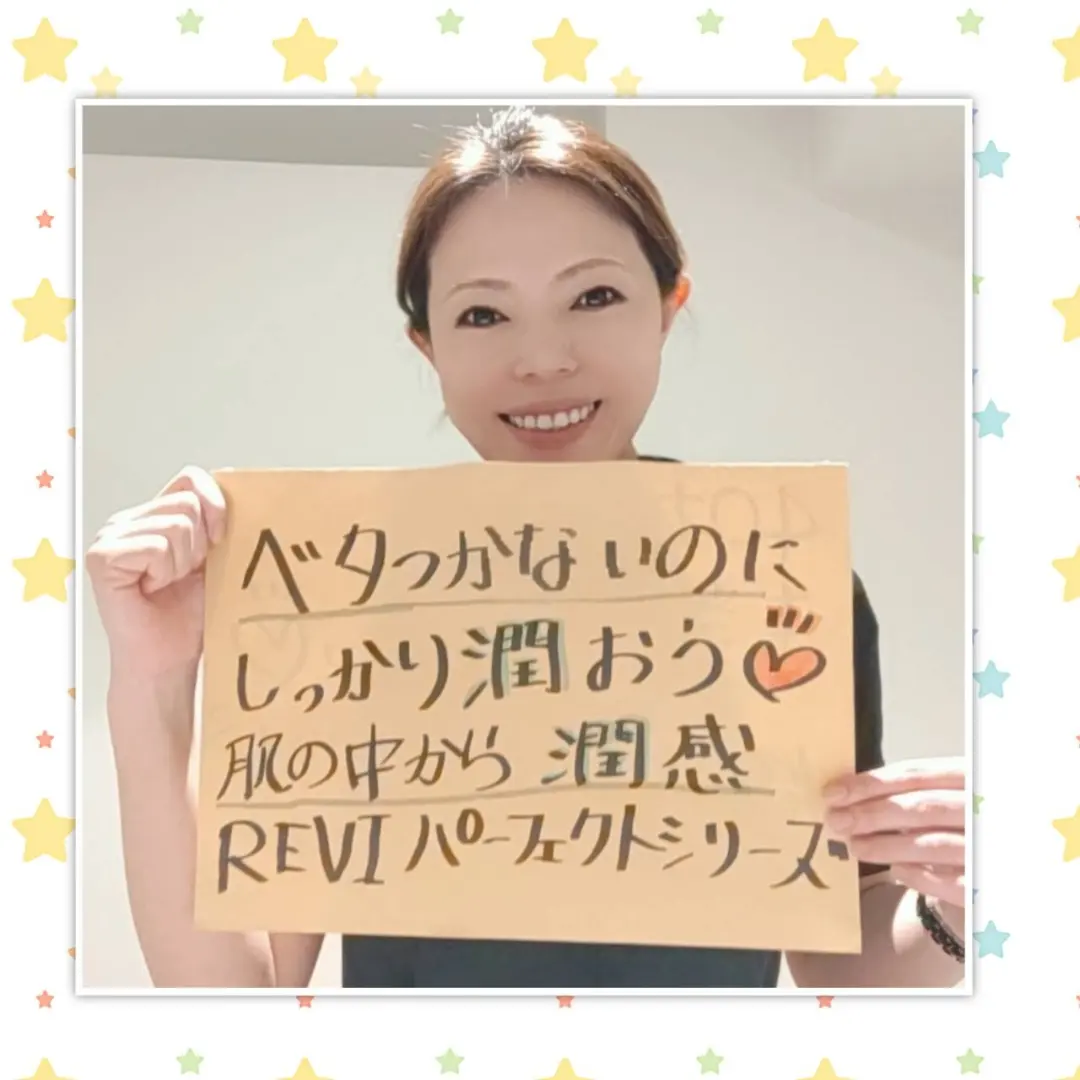 ベタつかないのに
しっかり潤おう♡
肌の中から潤感
REVIパーフェクトシリーズ